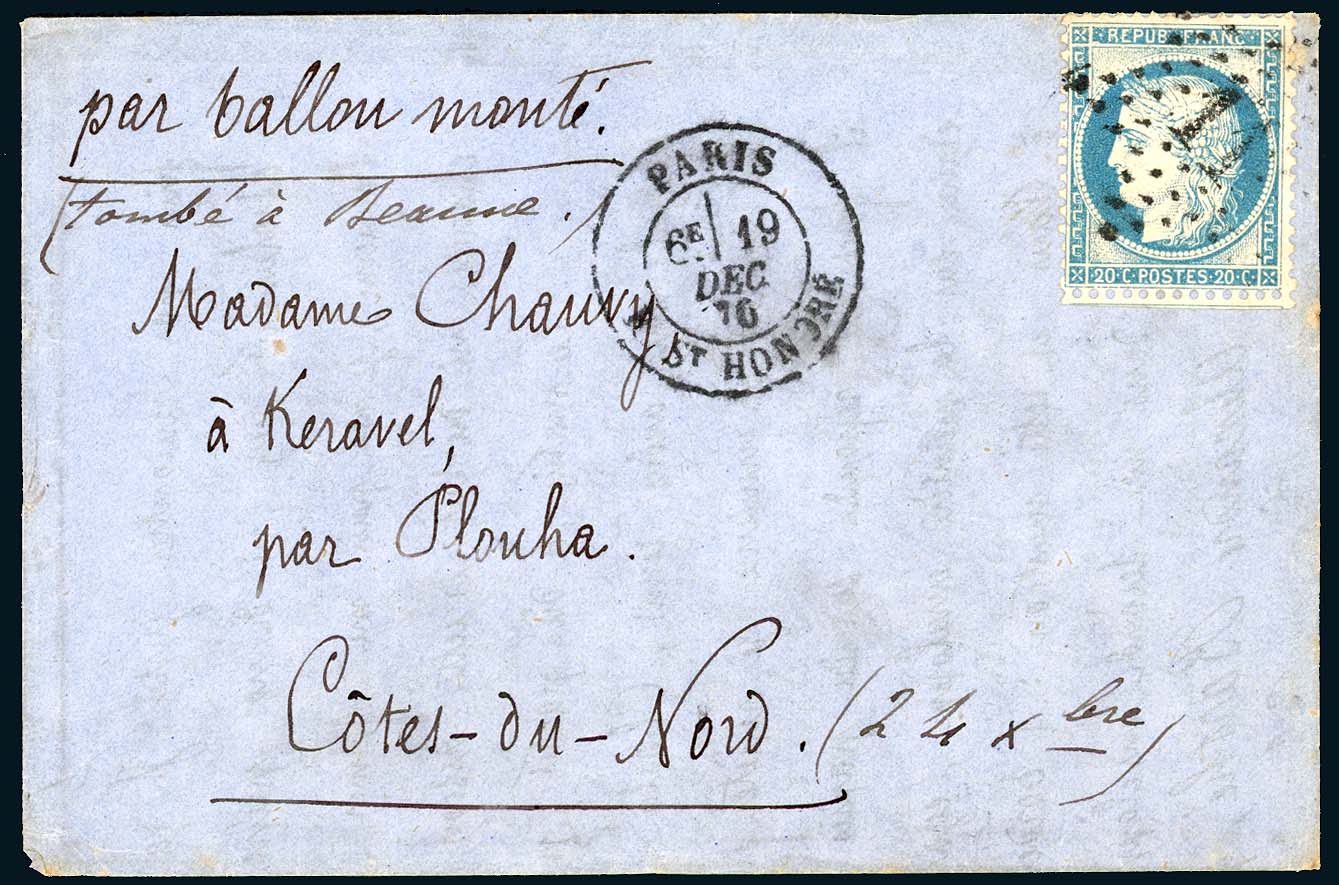 par ballon monté.
(tombé à Beaune.)
Madame Chauvy,
à Keravel,
par Plouha.
Côtes-du-Nord. (24 xbre)
PARIS
6E 19
DEC
70
ST HONORÉ
REPUB FRANC
20·C·POSTES·20·C